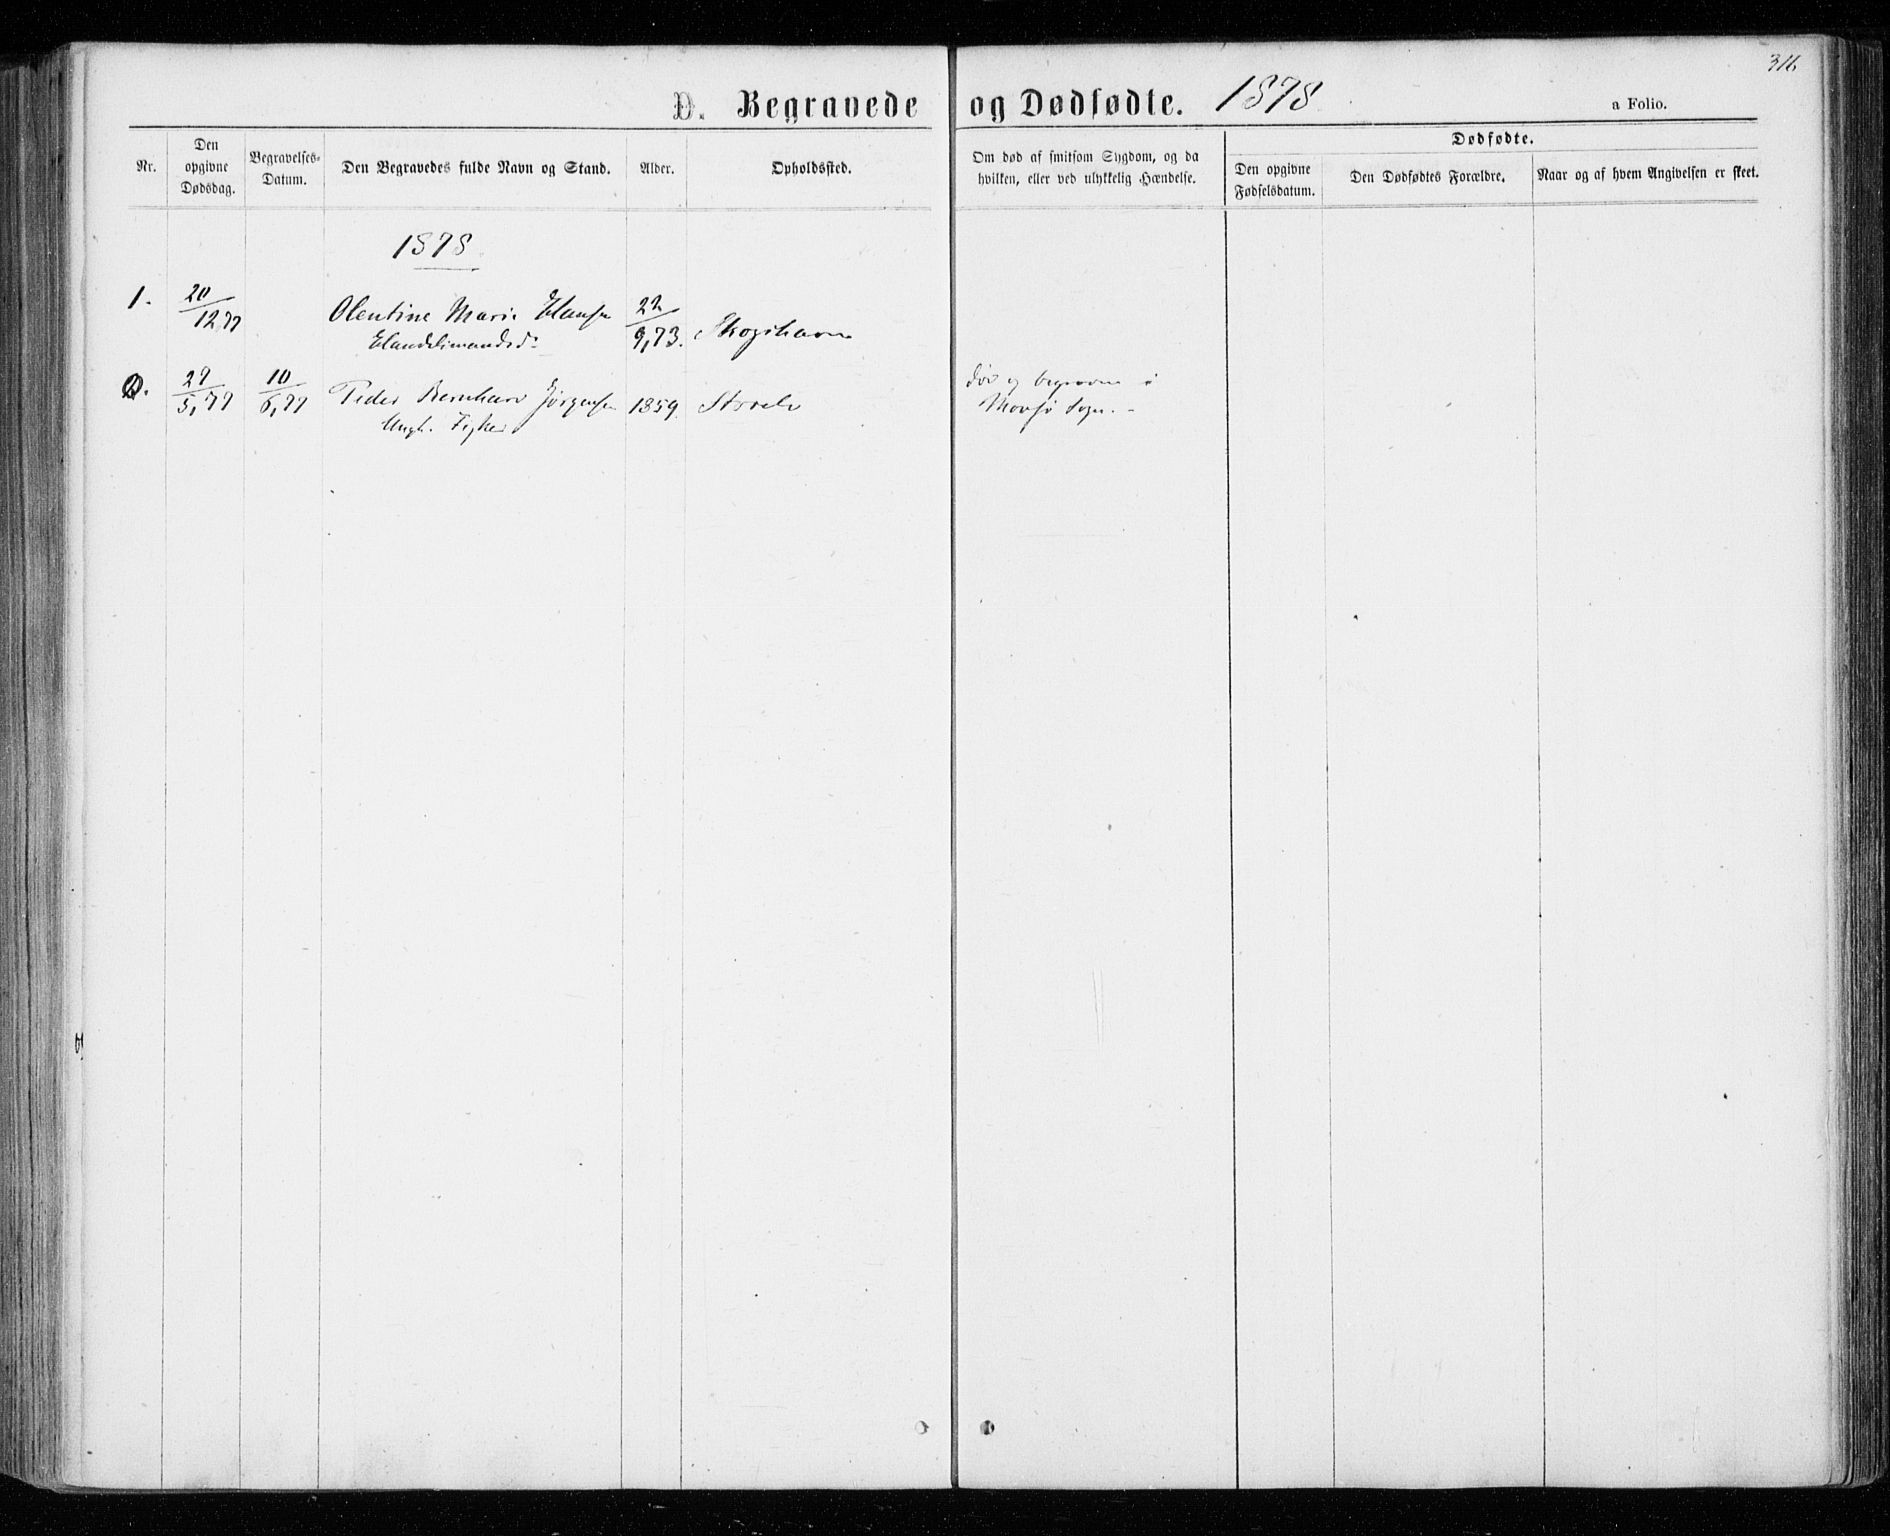 316
D. Begravede og Dødfødte. 1878
a Folio.
Nr.
Den opgivne Dødsdag.
Begravelses-Datum.
Den Begravedes fulde Navn og Stand.
Alder.
Opholdssted.
Om død af smitsom Sygdom, og da
hvilken, eller ved ulykkelig Hændelse.
Dødfødte.
Den opgivne Fødselsdatum.
Den Dødfødtes Forældre.
Naar og af hvem Angivelsen er skeet.
1878.
1. 20/12 77 Olentine Marie Hansen 22/9,73. Skogshavn
Handelsmandsd.
29/5,77 10/6,77 Peder Bernhard Jørgensen 1859. Storelv død og begraven i
Ungk. Fisker Sogn.